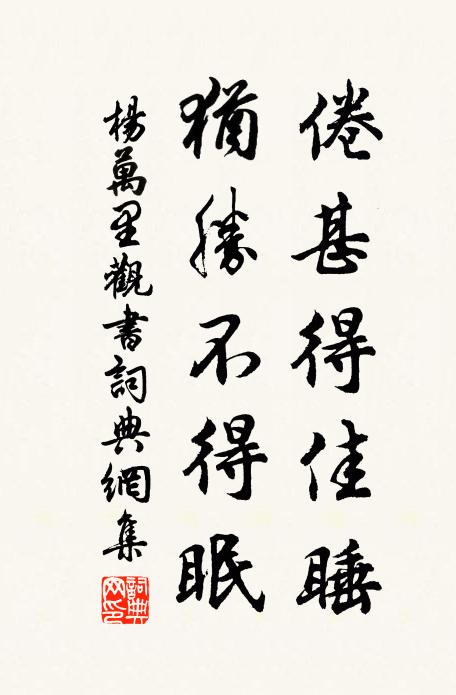 倦甚得佳睡
猶勝不得眠
楊萬里觀書詞典網集
詞典
网印